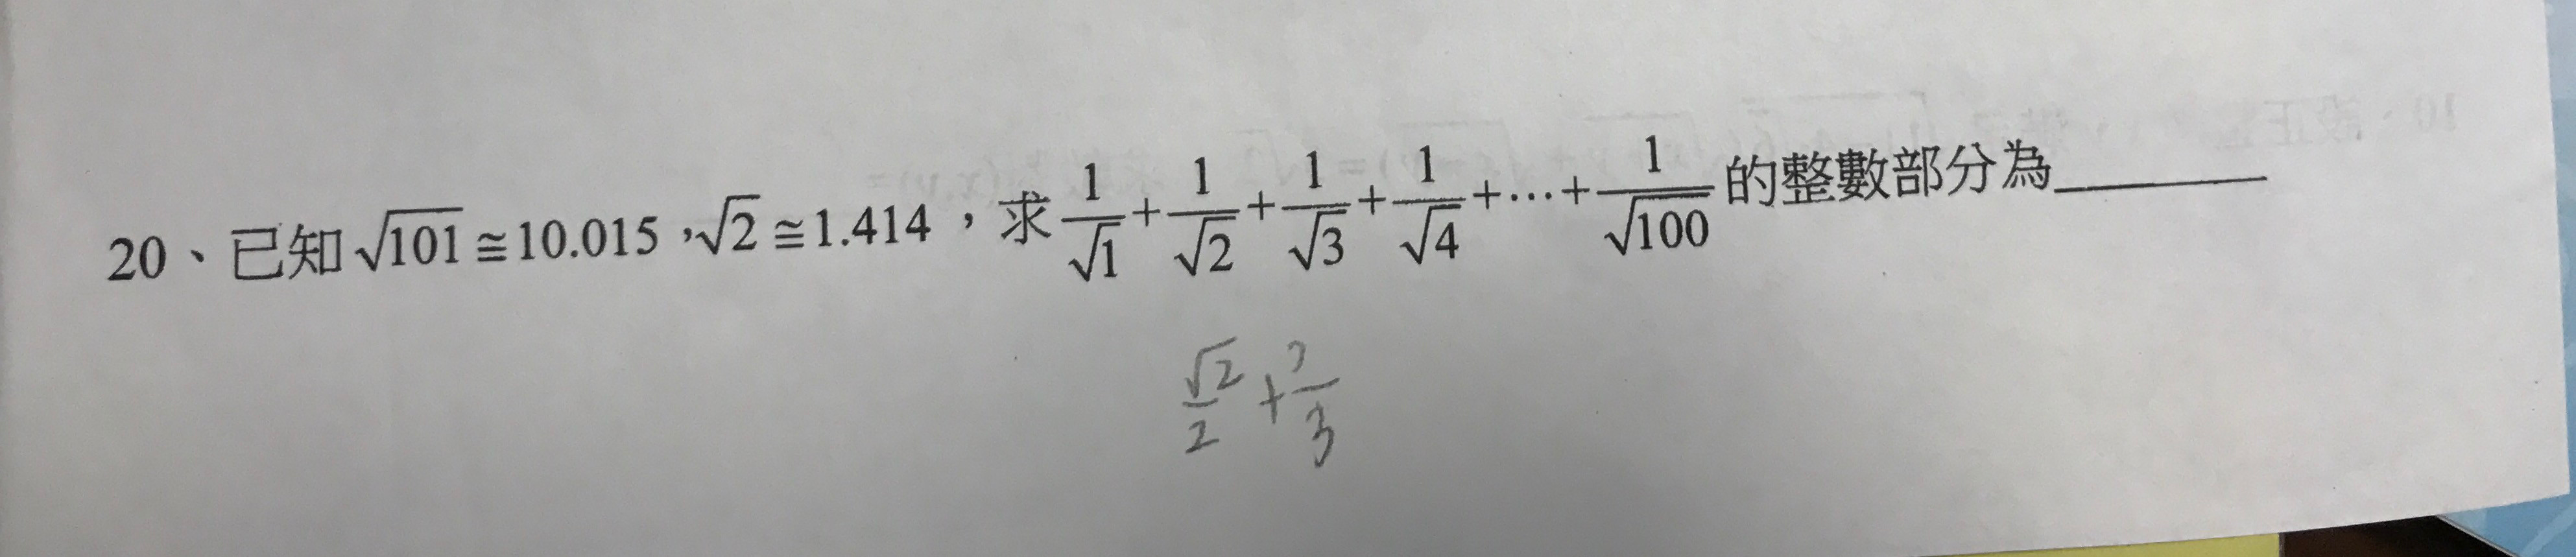 20、已知√101≅10.015，√2≅1.414，求 1/√1+1/√2+1/√3+1/√4+…+1/√100 的整數部分為______
√2/2+?/3